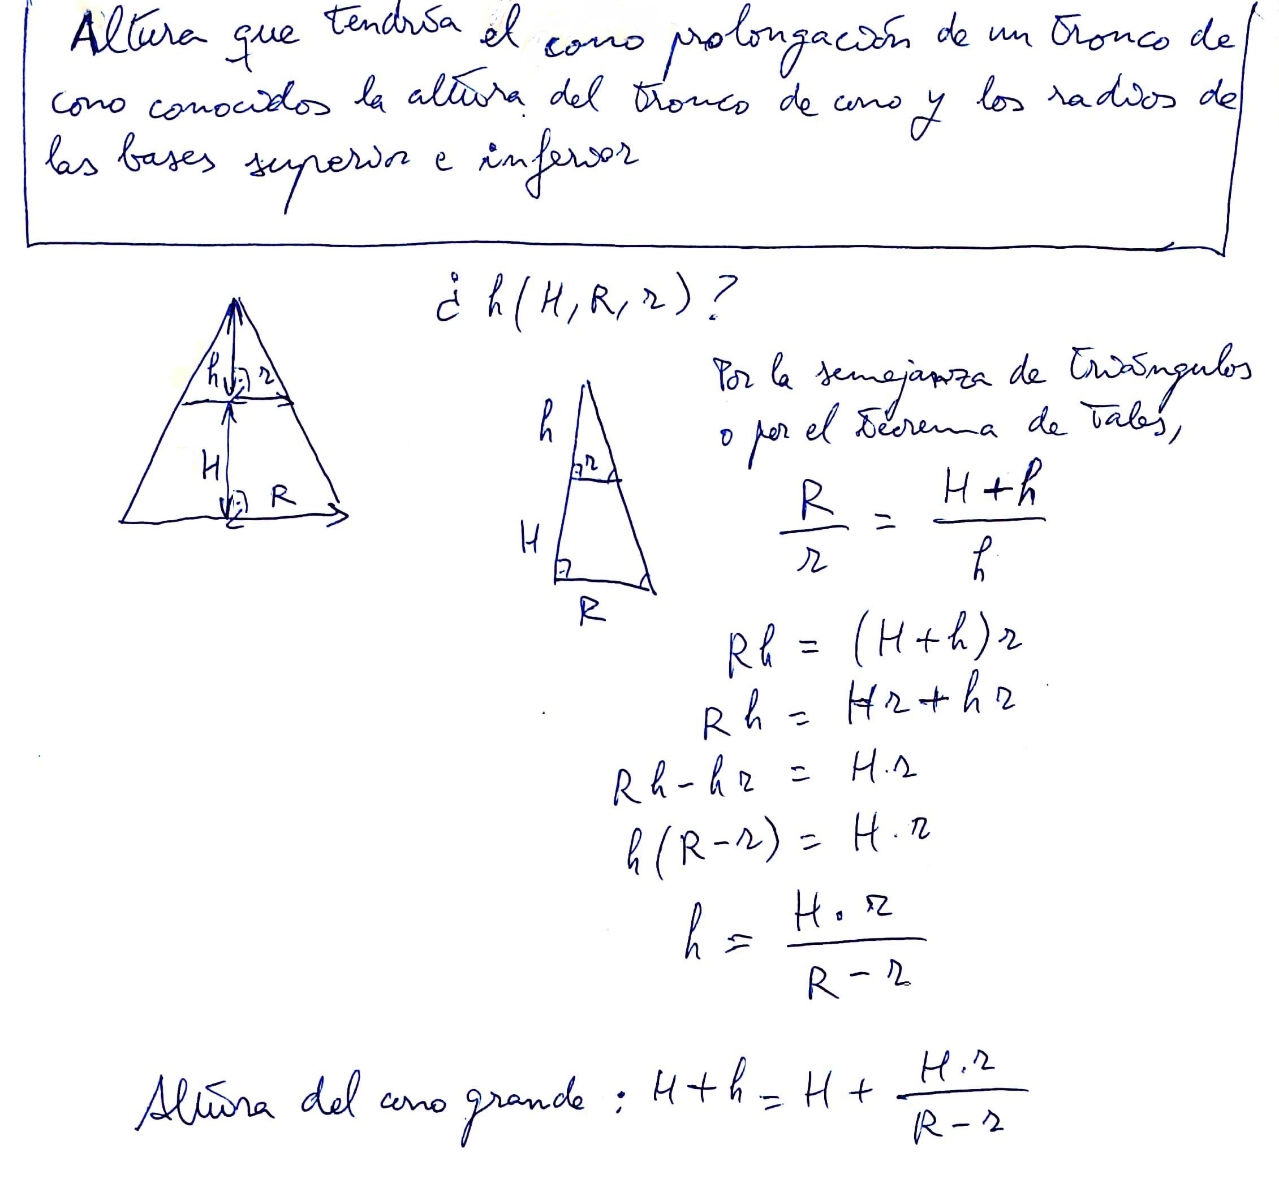 Altura que tendría el cono prolongación de un tronco de
cono conocidos la altura del tronco de cono y los radios de
las bases superior e inferior
¿ h(H, R, r)?
h r
H
R
h
r
H
R
Por la semejanza de triángulos
o por el teorema de Tales,
R/r = (H+h)/h
Rh = (H+h)r
Rh = Hr+hr
Rh-hr = H.r
h(R-r) = H.r
h = H.r/(R-r)
Altura del cono grande: H+h = H + H.r/(R-r)